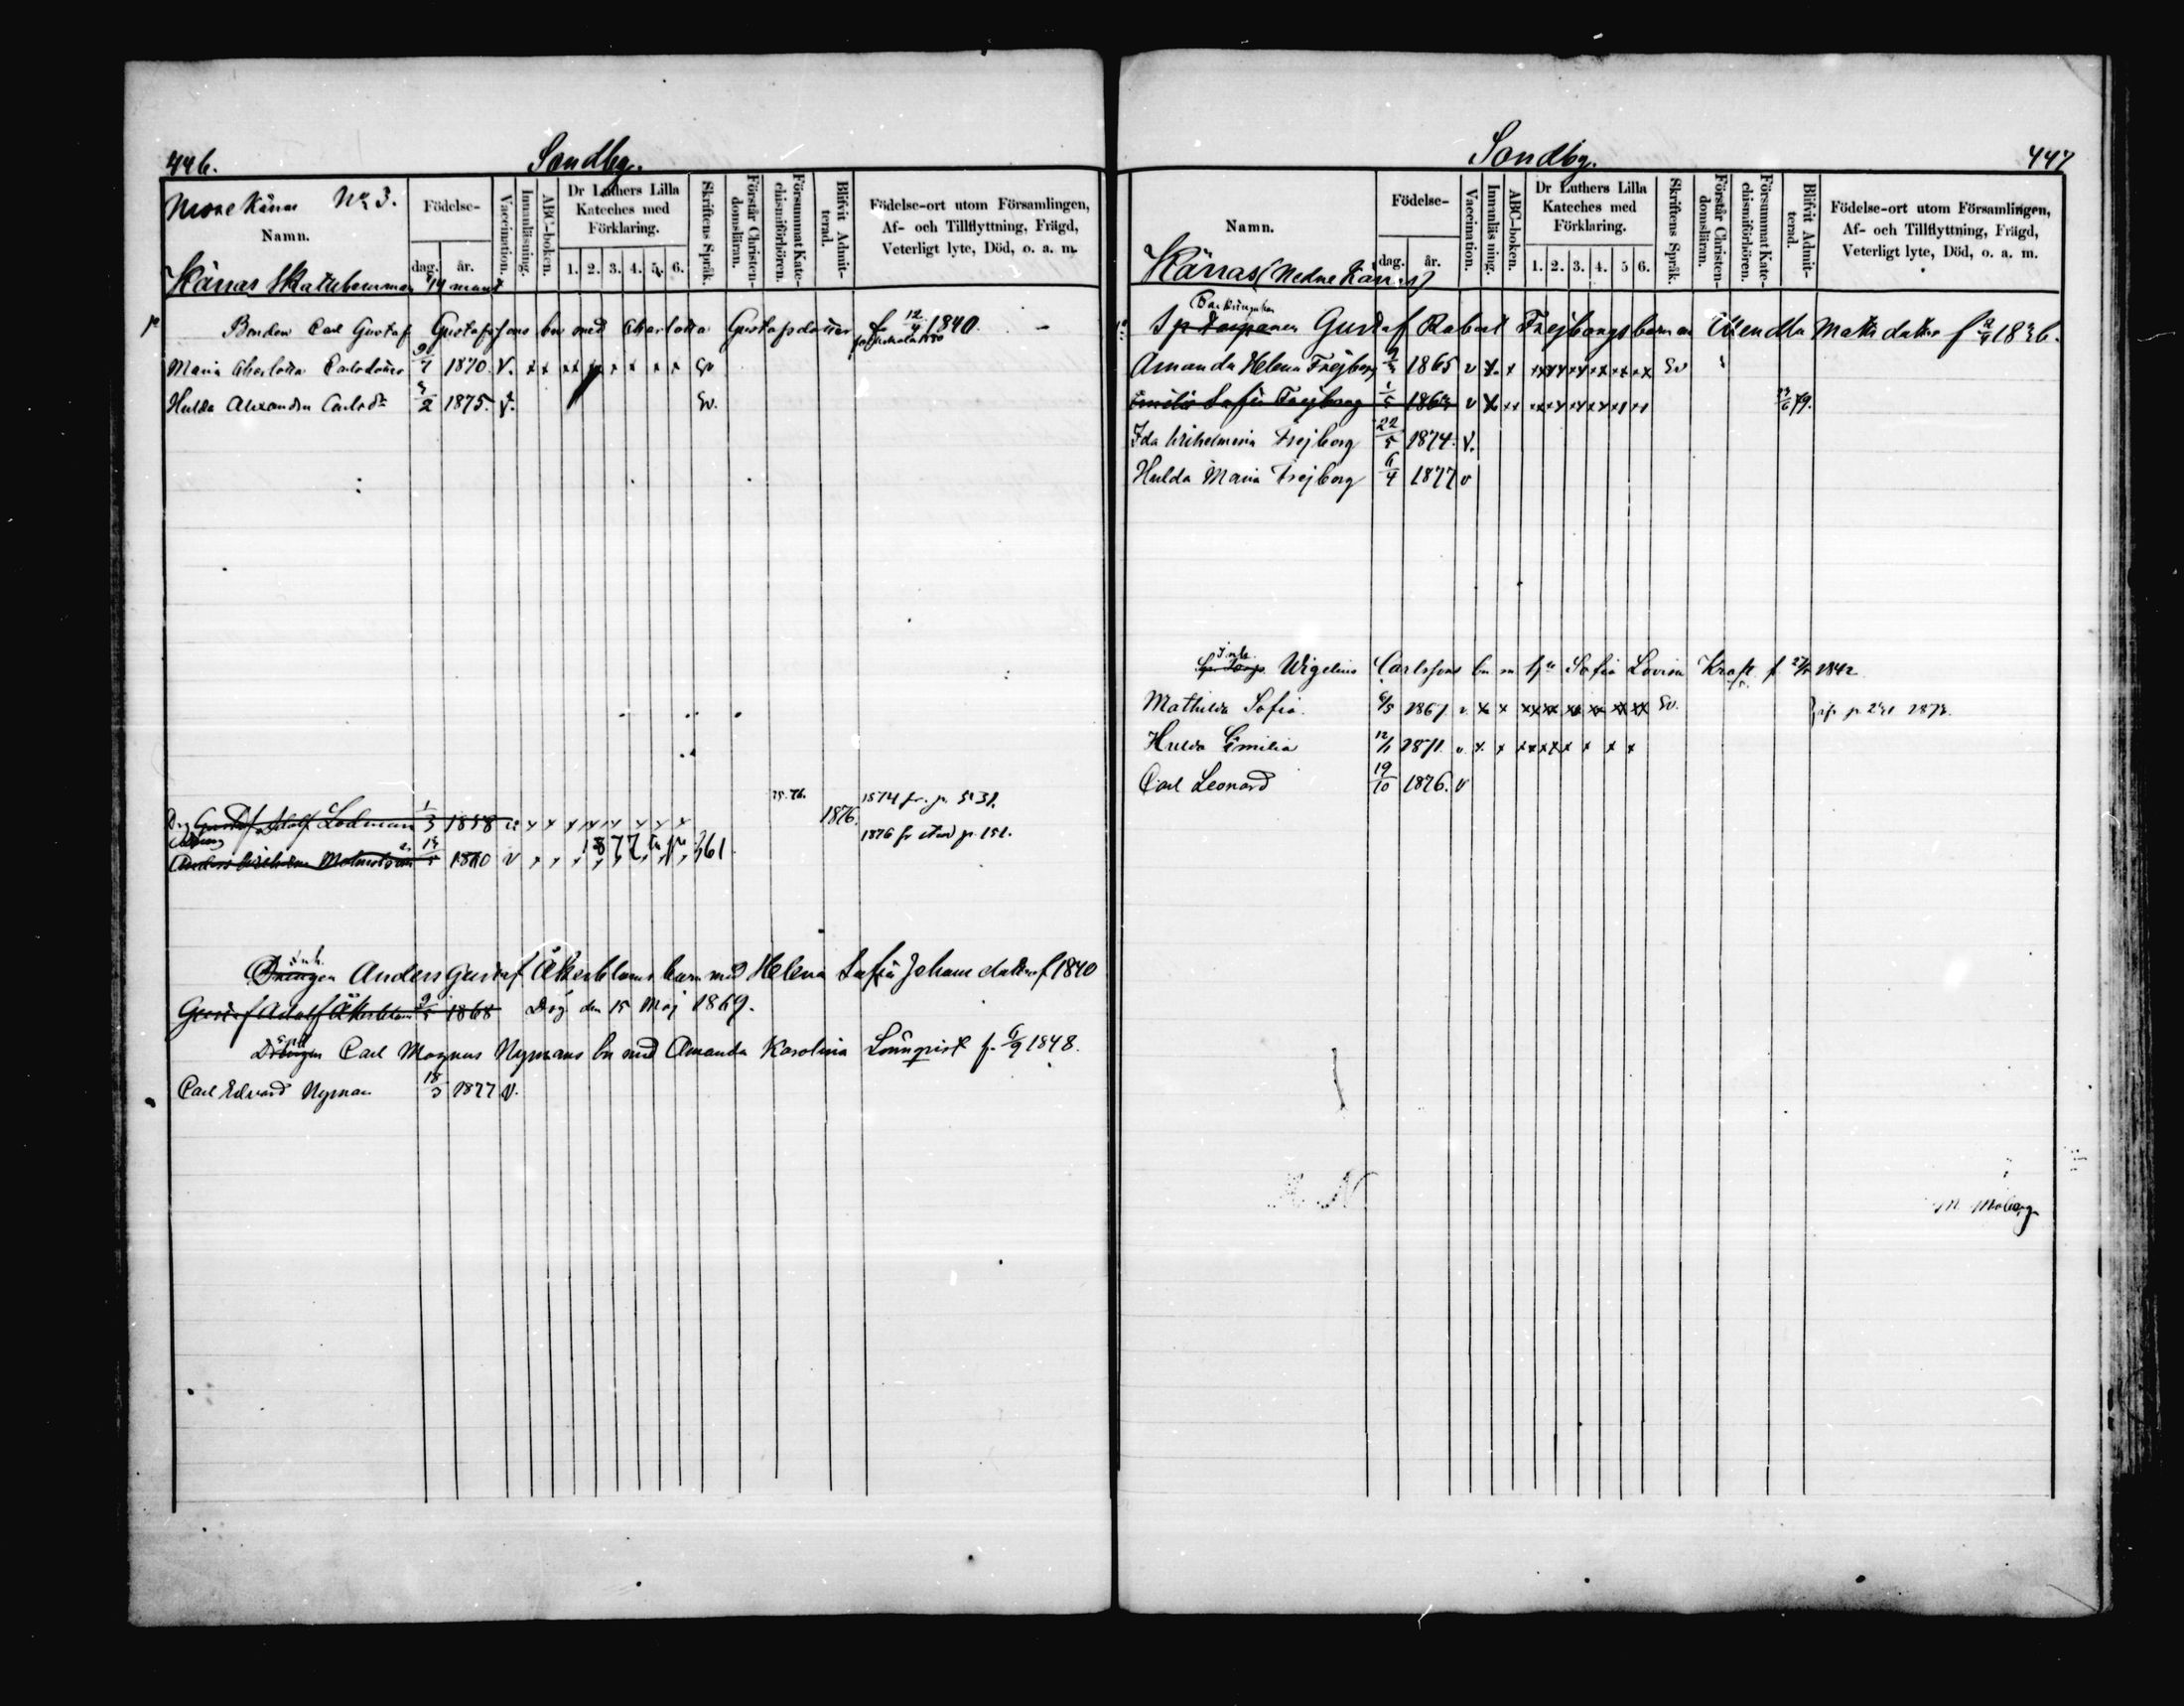 446. Sandby.
More Kärras No 3.
Namn.
Födelse-
dag. år.
Vaccination.
Innanläsning.
ABC-boken.
Dr Luthers Lilla Kateches med Förklaring.
1. 2. 3. 4. 5. 6.
Skriftens Språk.
Förstår Christendomsläran.
Försummat Katechismiförhören.
Blifvit Admitterad.
Födelse-ort utom Församlingen,
Af- och Tillflyttning, Frägd,
Veterligt lyte, Död, o. a. m.
Kärras Skattehemman
Bonden Carl Gustaf Gustafssons bn med Charlotta Gustafsdotter f 12/4 1840.
Maria Charlotta Carlsdotter 9/7 1870. v. x x x x x x x x x Sv
Hulda Alexandra Carlsdr 3/2 1875. v. Sv.
75. 76. 1874 fr. p. 531.
Dr. Gustaf Adolf Lodman 1/3 1858 v x x x x x x x x 1876.
1876 fr p. 151.
Anders Wilhelm Malmström 1860 v 1877 p 361
Inh.
Drengen Anders Gustaf Åkerbloms barn med Helena Sofia Johansdotter f 1840
Gustaf Adolf Åkerblom 9/5 1868 Dog den 15 Maj 1869.
Drengen Carl Magnus Nymans bn med Amanda Karolina Lönnqvist f. 6/9 1848.
Carl Edvard Nyman 18/3 1877 v.
Sandby. 447
Namn.
Födelse-
dag. år.
Vaccination.
Innanläsning.
ABC-boken.
Dr Luthers Lilla Kateches med Förklaring.
1. 2. 3. 4. 5 6.
Skriftens Språk.
Förstår Christendomsläran.
Försummat Katechismiförhören.
Blifvit Admitterad.
Födelse-ort utom Församlingen,
Af- och Tillflyttning, Frägd,
Veterligt lyte, Död, o. a. m.
Kärras (Nedre Kärras)
Sp Torparen Gustaf Robert Frejborgs barn m Wendla Matts dotter f 1836.
Amanda Helena Frejborg 1865 v x x x x x x x x Sv
Emilia Sofia Frejborg 1/5 1863 v x x x x x x x x 79.
Ida Wilhelmina Frejborg 22/5 1874. v.
Hulda Maria Frejborg 6/4 1877 v
Inh.
Sp. Torp. Wigelius Carlssons bn m Sofia Lovisa Kraft f 1842
Mathilda Sofia 6/5 1867 v x x x x x x x x Sv.
Hulda Emilia 12/1 1871 v x x x x x x x x
Carl Leonard 19/10 1876. v
M Moberg